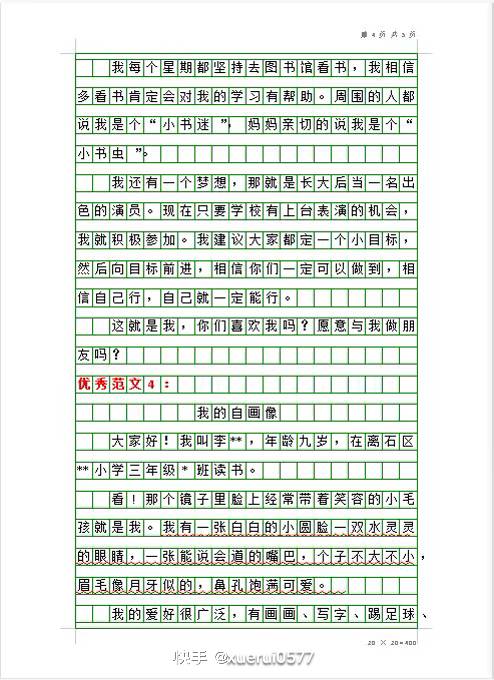 第 4 页 共 5 页
我每个星期都坚持去图书馆看书，我相信
多看书肯定会对我的学习有帮助。周围的人都
说我是个“小书迷”，妈妈亲切的说我是个“
小书虫”。
我还有一个梦想，那就是长大后当一名出
色的演员。现在只要学校有上台表演的机会，
我就积极参加。我建议大家都定一个小目标，
然后向目标前进，相信你们一定可以做到，相
信自己行，自己就一定能行。
这就是我，你们喜欢我吗？愿意与我做朋
友吗？
优秀范文4：
我的自画像
大家好！我叫李**，年龄九岁，在离石区
**小学三年级*班读书。
看！那个镜子里脸上经常带着笑容的小毛
孩就是我。我有一张白白的小圆脸一双水灵灵
的眼睛，一张能说会道的嘴巴，个子不大不小，
眉毛像月牙似的，鼻孔饱满可爱。
我的爱好很广泛，有画画、写字、踢足球、
20 × 20=400
快手 @xuerui0577